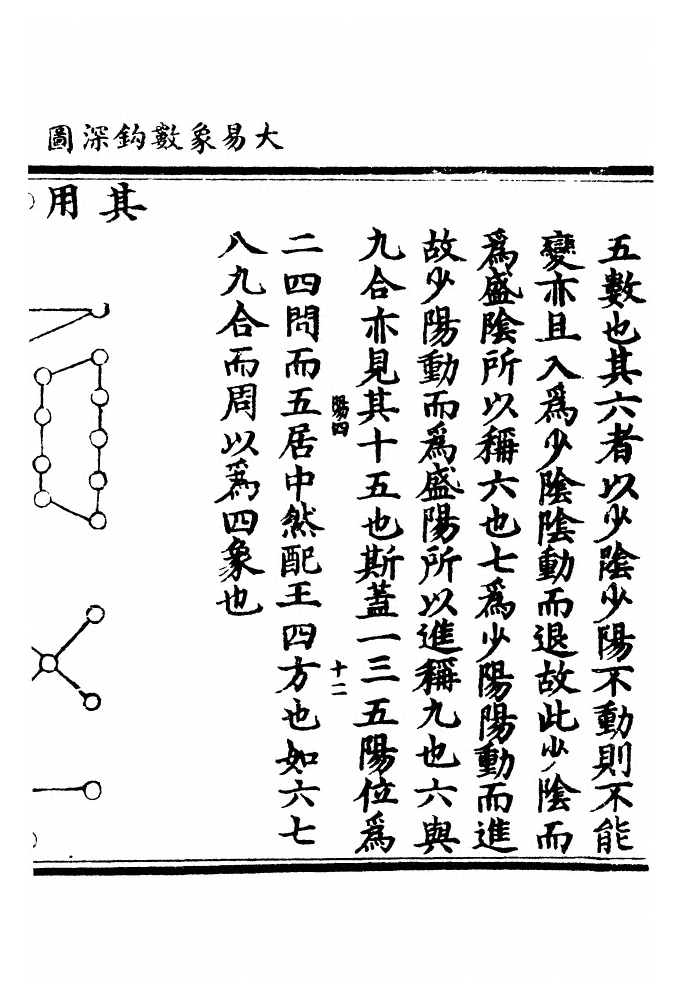 大易象數鈎深圖
五數也其六者以少陰少陽不動則不能
變亦且入爲少陰陰動而退故此少陰而
爲盛陰所以稱六也七爲少陽陽動而進
故少陽動而爲盛陽所以進稱九也六與
九合亦見其十五也斯蓋一三五陽位爲
陽四
十二
二四問而五居中然配王四方也如六七
八九合而周以爲四象也
其用